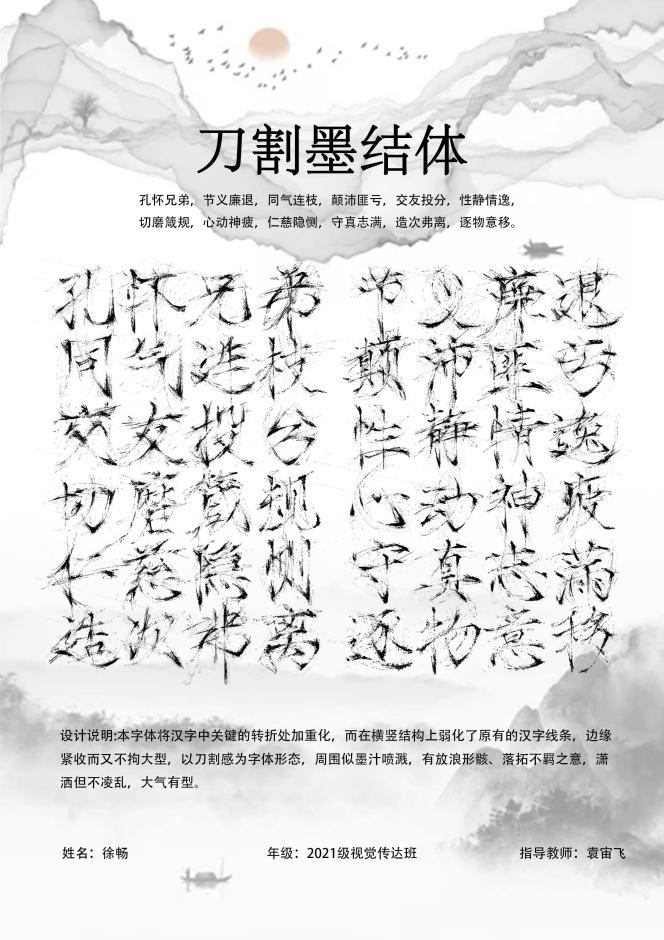 刀割墨结体
孔怀兄弟，节义廉退，同气连枝，颠沛匪亏，交友投分，性静情逸，
切磨箴规，心动神疲，仁慈隐恻，守真志满，造次弗离，逐物意移。
孔怀兄弟 节义廉退
同气连枝 颠沛匪亏
交友投分 性静情逸
切磨箴规 心动神疲
仁慈隐恻 守真志满
造次弗离 逐物意移
设计说明:本字体将汉字中关键的转折处加重化，而在横竖结构上弱化了原有的汉字线条，边缘
紧收而又不拘大型，以刀割感为字体形态，周围似墨汁喷溅，有放浪形骸、落拓不羁之意，潇
洒但不凌乱，大气有型。
姓名：徐畅 年级：2021级视觉传达班 指导教师：袁宙飞